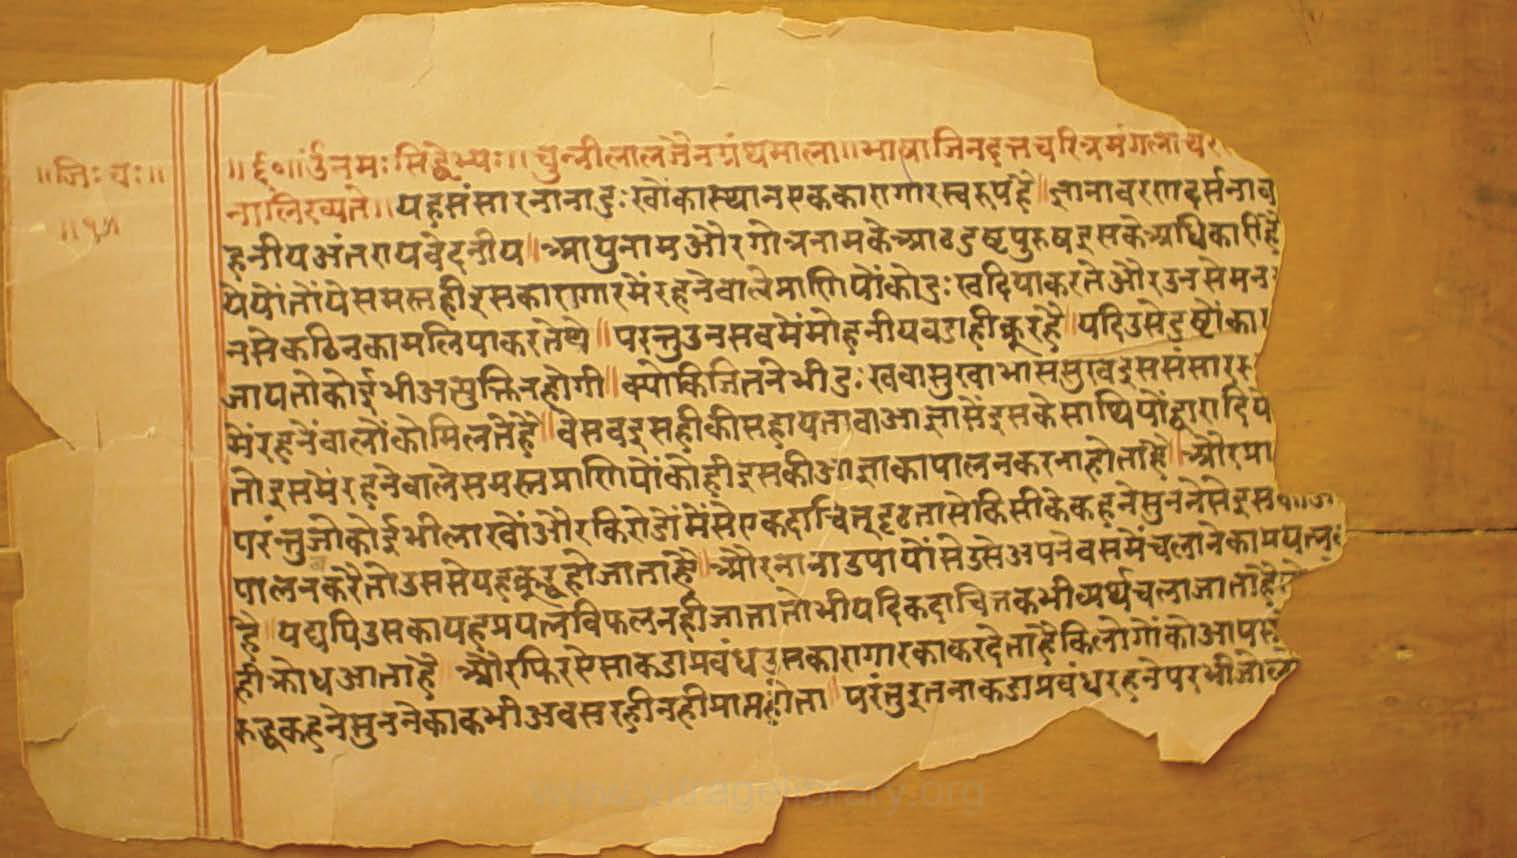 ॥जिः चः॥
॥१॥
॥६०॥ ॐ नमः सिद्धेभ्यः॥ चुन्नीलालजैनग्रंथमाला॥ भाषाजिनदत्तचरित्रमंगला
नालिख्यते॥ यहसंसारनानादुःखोंकास्थानएककारागारस्वरुपहै॥ज्ञानावरणदर्सनाव
हनीयअंतरायवेदनीय॥आयुनामऔरगोत्रनामकेआठदुष्टपुरुषइसकेअधिकारीहै
येयोंतोंयेसमस्तहीइसकारागारमेंरहनेवालेप्राणियोंकोदुःखदियाकरतेऔरउनसेमन
नसेकठिनकामलियाकरतेथे॥परन्तुउनसवमेंमोहनीयवडाहीक्रूरहै॥यदिउसेदुष्टोंका
जायतोकोईभीअत्युक्तिनहोगी॥क्योकिजितनेभीदुःखवासुखाभाससुखइससंसार
मेंरहनेंवालोंकोमिलतेहै॥वेसवइसहीकीसहायतावाआज्ञासेंइसकेसाथियोंद्वारादिये
तोइसमेंरहनेवालेसमस्तप्राणियोंकोहीइसकीआज्ञाकापालनकरनाहोताहै॥औरप्रा
परंन्तुजोकोईभीलाखोंऔरकिरोडोंमेंसेएकदाचित्दृढतासेकिसीकेकहनेसुननेसेइस
पालनकरैतोउससेयहक्रुद्धहोजाताहै॥औरनानाउपायोंसेउसेअपनेवसमेंचलानेकाप्रयत्न
है॥यद्यपिउसकायहप्रयत्नविफलनहीजातातोभीयदिकदाचितकभीव्यर्थचलाजाताहै
हीक्रोधआताहै॥औरफिरऐसाकडाप्रवंधउसकारागारकाकरदेताहैकिलोगोंकोआपस
कछूकहनेसुननेकाकभीअवसरहीनहीप्राप्तहोता॥परंतुइतनाकडाप्रवंधरहनेपरभीजो
www.vitragelibrary.org